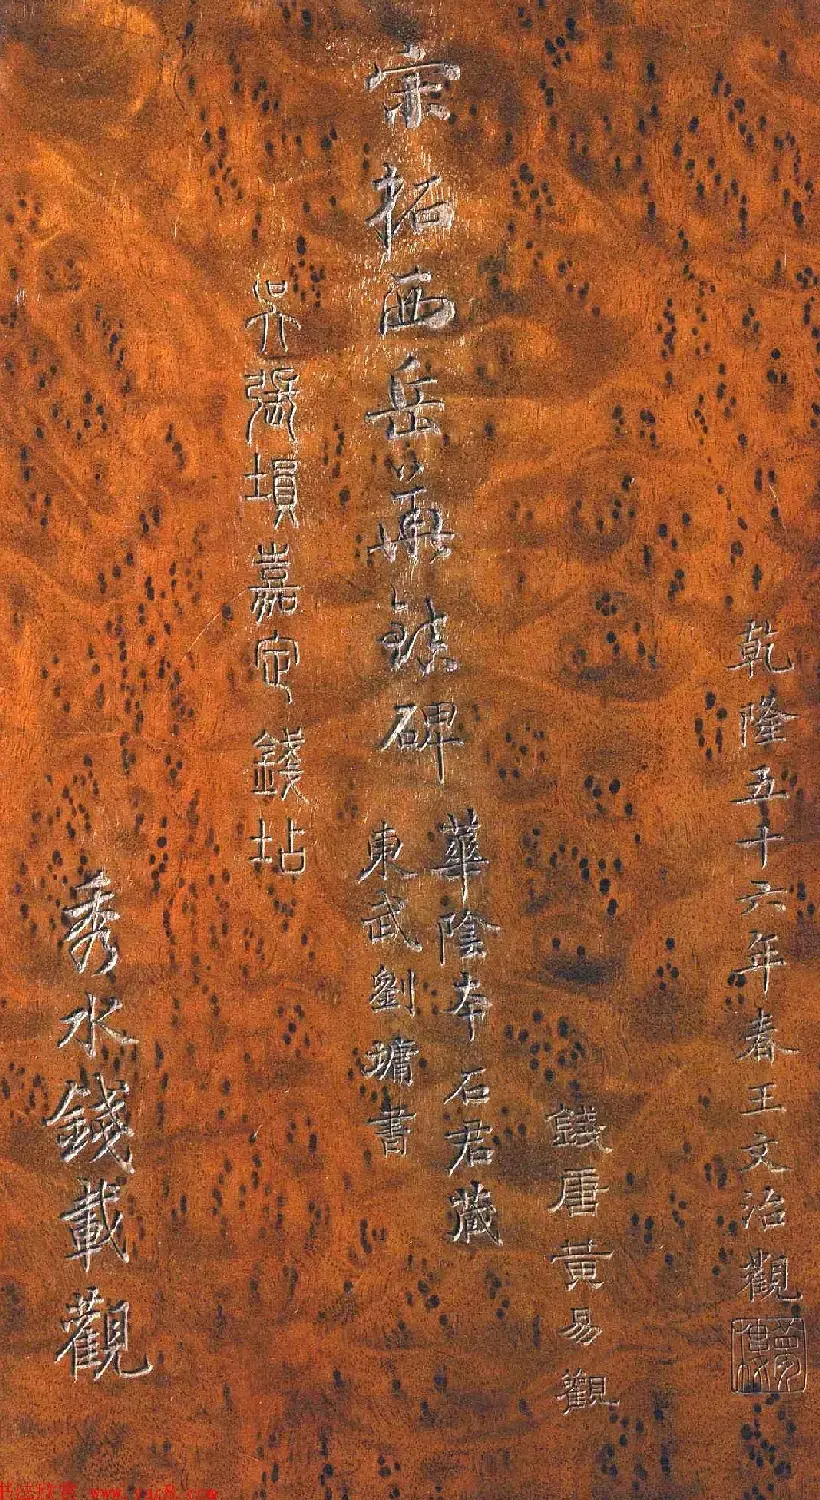 乾隆五十六年春王文治觀
夢樓
錢唐黃易觀
宋拓西岳華嶽碑
華陰本石君藏
東武劉墉書
吳張塤嘉定錢坫
秀水錢載觀
www.yac8.com